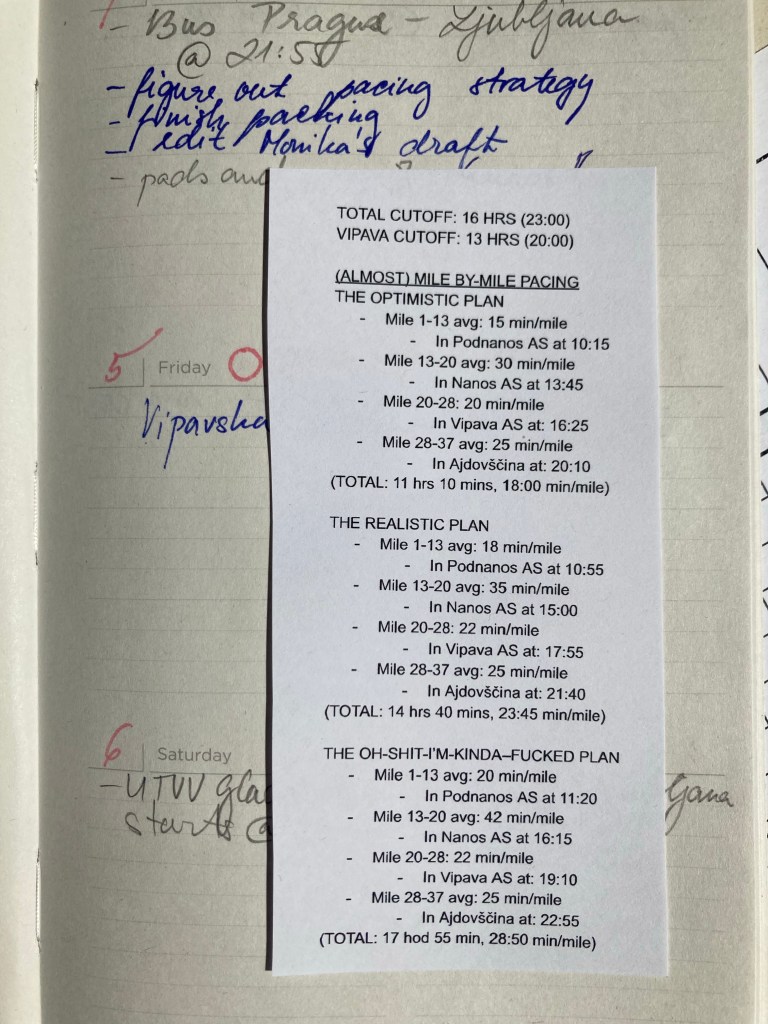 - Bus Prague - Ljubljana
@ 21:55
- figure out pacing strategy
- finish packing
- edit Monika's draft
- pads and
TOTAL CUTOFF: 16 HRS (23:00)
VIPAVA CUTOFF: 13 HRS (20:00)
(ALMOST) MILE BY-MILE PACING
THE OPTIMISTIC PLAN
- Mile 1-13 avg: 15 min/mile
- In Podnanos AS at 10:15
- Mile 13-20 avg: 30 min/mile
- In Nanos AS at 13:45
- Mile 20-28: 20 min/mile
- In Vipava AS at: 16:25
- Mile 28-37 avg: 25 min/mile
- In Ajdovščina at: 20:10
(TOTAL: 11 hrs 10 mins, 18:00 min/mile)
THE REALISTIC PLAN
- Mile 1-13 avg: 18 min/mile
- In Podnanos AS at 10:55
- Mile 13-20 avg: 35 min/mile
- In Nanos AS at 15:00
- Mile 20-28: 22 min/mile
- In Vipava AS at: 17:55
- Mile 28-37 avg: 25 min/mile
- In Ajdovščina at: 21:40
(TOTAL: 14 hrs 40 mins, 23:45 min/mile)
THE OH-SHIT-I'M-KINDA–FUCKED PLAN
- Mile 1-13 avg: 20 min/mile
- In Podnanos AS at 11:20
- Mile 13-20 avg: 42 min/mile
- In Nanos AS at 16:15
- Mile 20-28: 22 min/mile
- In Vipava AS at: 19:10
- Mile 28-37 avg: 25 min/mile
- In Ajdovščina at: 22:55
(TOTAL: 17 hod 55 min, 28:50 min/mile)
5 Friday
Vipavska
6 Saturday
- UTVV
starts @